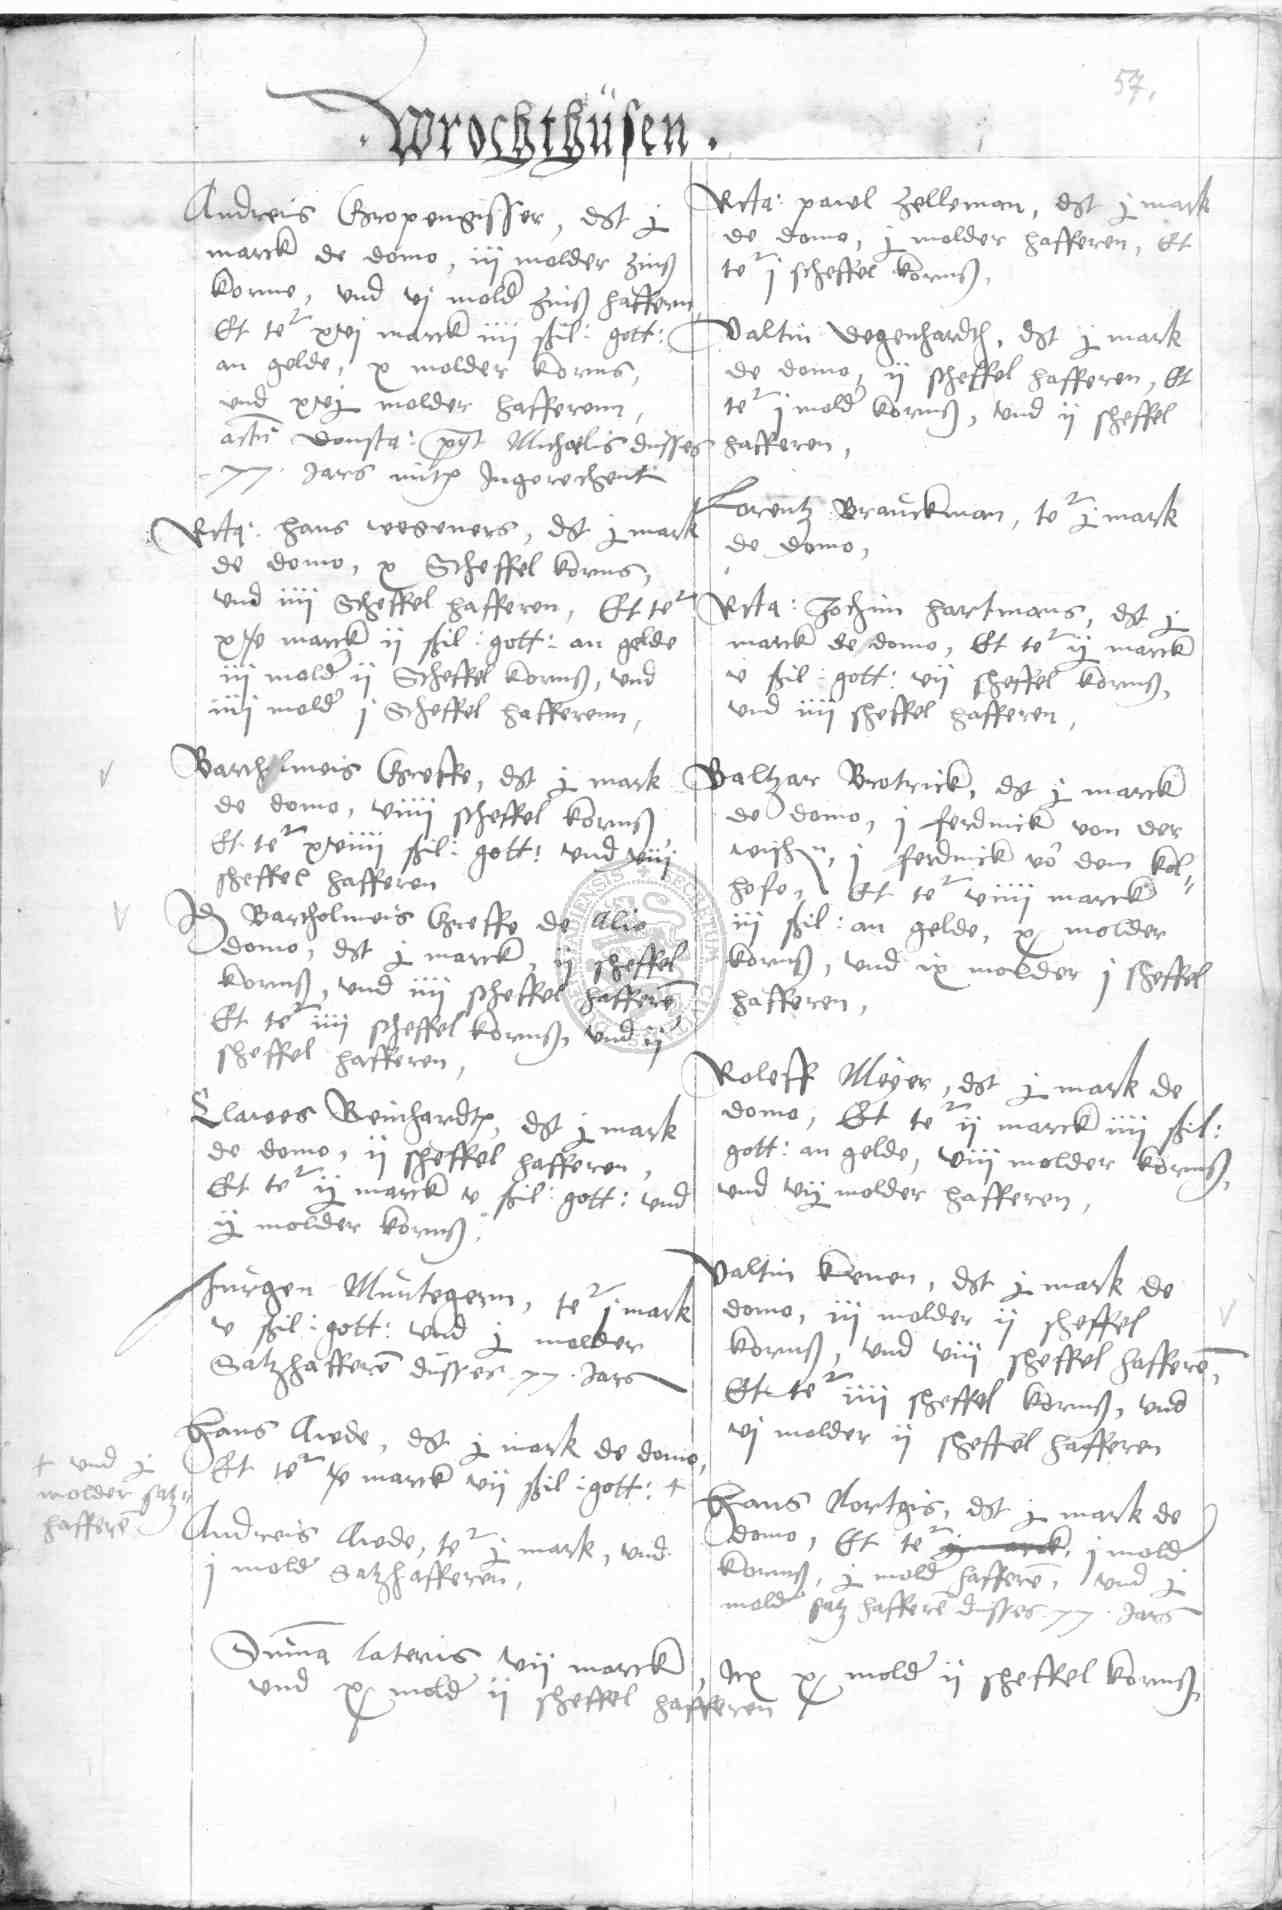 57.
Wrochthüsen.
Andreis Gropengisser, dst j
marck de domo, iij molder zinß
korne, vnd vj mold zinß haffern,
Et te^r xvj marck iiij ßil: gott:
an gelde, x molder korns,
vnd xvj molder hafferenn,
Michaelis düsses
77 Jars mit Ingerechent
Rcta: hans weseners, dst j mark
de domo, x Scheffel korns,
vnd iiij Scheffel hafferen, Et te^r
marck ij ßil: gott: an gelde
iij mold ij Scheffel kornß, vnd
iiij mold j Scheffel hafferenn,
Bartholmeis Greffe, dst j mark
de domo, viiij scheffel kornß
Et te^r xviiij ßil: gott: vnd viij
scheffel hafferen
Bartholmeis Greffe de Alio
domo, dst j marck, ij scheffel
kornß, vnd iiij scheffel hafferē
Et te^r iiij scheffel kornß, vnd ij
scheffel hafferen,
Clawes Reinhardt, dst j mark
de domo, ij scheffel hafferen,
Et te^r ij marck v ßil: gott: vnd
ij molder kornß,
Jürgen Müntegern, te^r j mark
v ßil: gott: vnd j molder
Satzhafferē düsses .77. Jars
Hans Arde, dst j mark de domo,
Et te^r marck vij ßil: gott: +
+ vnd j
molder satz
hafferē
Andreis Arde, te^r j mark, vnd
j mold Satzhafferen,
Rcta: pawel Zelleman, dst j mark
de domo, j molder hafferen, Et
te^r j scheffel kornß,
Valtin Degenhardt, dst j mark
de domo, ij scheffel hafferen, Et
te^r j mold kornß, vnd ij scheffel
hafferen,
Lorentz Brauckman, te^r j mark
de domo,
Rcta: Jochim hartmans, dst j
marck de domo, Et te^r ij marck
v ßil: gott: vij scheffel kornß,
vnd iiij scheffel hafferen,
Baltzar Brotrick, dst j marck
de domo, j ferdinck von der
wischn, j ferdinck vō dem kol-
hofe, Et te^r viiij marck
iij ßil: an gelde, x molder
kornß, vnd ix molder j scheffel
hafferen,
Roleff Meyer, dst j mark de
domo, Et te^r ij marck iiij ßil:
gott: an gelde, viij molder kornß,
vnd vij molder hafferen,
Valtin krenen, dst j mark de
domo, iij molder ij scheffel
kornß, vnd viij scheffel hafferē,
Et te^r iiij scheffel kornß, vnd
vj molder ij scheffel hafferen
Hans Cortgis, dst j mark de
domo, Et te^r j mold
kornß, j mold hafferē, vnd j
mold satz hafferē düsses .77. Jars
Summa lateris vij marck, Itx x mold ij scheffel kornß,
vnd x mold ij scheffel hafferen